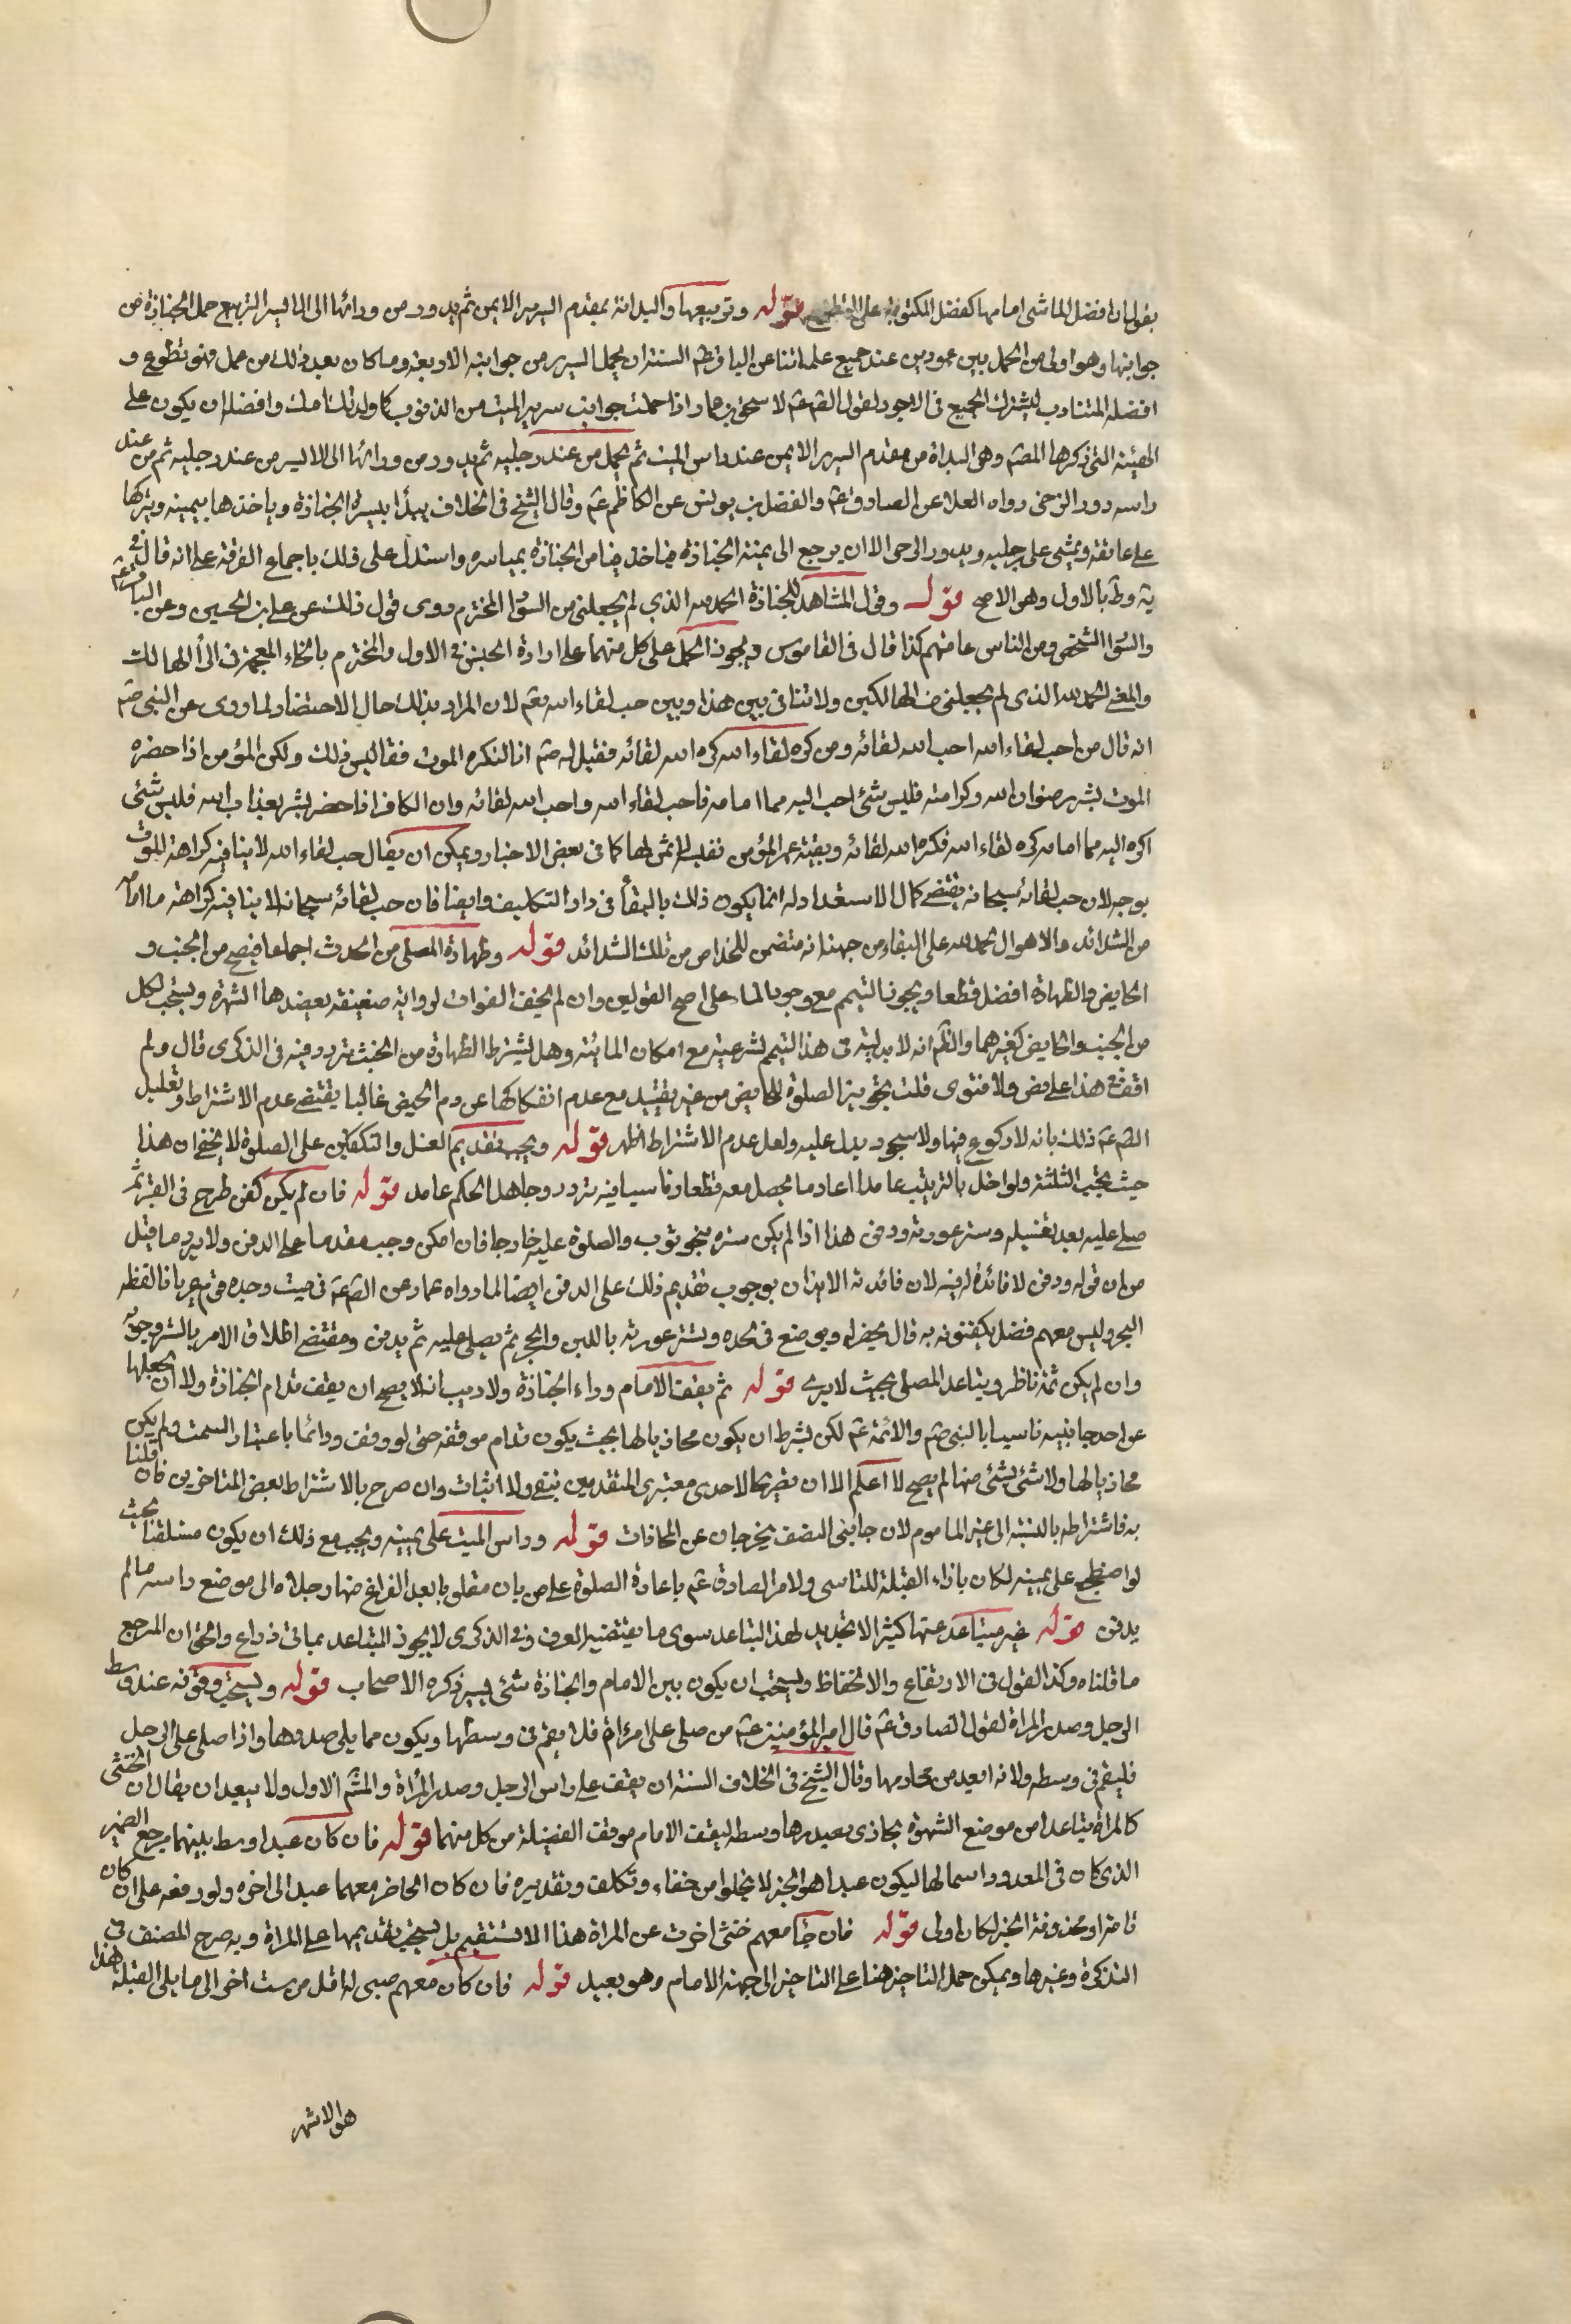 بقوله ان افضل الماشى امامها كفضل المكتوبة على التطوع قوله وتربيعها والبداة بمقدم السرير الايمن ثم يدور من ورائها الى الايسر التربيع حمل الجنازة من
جوانبها وهو اولى من الحمل بين عمودين عند جميع علمائنا عن الباقر عم السنة ان يحمل السرير من جوانبه الاربعة وما كان بعد ذلك من حمل فهو تطوع و
افضله المتناوب ليشترك الجميع فى الاجر ولقول الصم عم لاسحق بن عمار اذا حملت جوانب سرير الميت من الذنوب كما ولدتك امك وافضله ان يكون على
الهيئة التى ذكرها المصم وهى البداة من مقدم السرير الايمن عند راس الميت ثم يحمل من عند رجليه ثم يدور من ورائها الى الايسر من عند رجليه ثم من عند
راسه دور الرحى رواه العلا عن الصادق عم والفضل بن يونس عن الكاظم عم وقال الشيخ فى الخلاف يبدأ بيسرة الجنازة وياخذها بيمينه ويتركها
على عاتقه ويمشى على رجليه ويدور الرحى الا ان يرجع الى يمنة الجنازة فياخذ ميامن الجنازة بمياسره واستدل على ذلك باجماع الفرقة على انه قال فى
ية وط بالاول وهو الاصح قوله وقول المشاهد للجنازة الحمد لله الذي لم يجعلنى من السوا المخترم روى قول ذلك عن على بن الحسين وعن الباقر عم
والسوا الشخص ومن الناس عامتهم كذا قال فى القاموس ويجوز الحمل على كل منهما على ارادة الجنس فى الاول والمخترم بالخاء المعجمة والراء الهالك
والمعنى الحمد لله الذى لم يجعلنى من الهالكين ولا تنافى بين هذا وبين حب لقاء الله تعم لان المراد بذلك حال الاحتضار لما روى عن النبى صم
انه قال من احب لقاء الله احب الله لقائه ومن كره لقاء الله كره الله لقائه فقيل له صم انا لنكره الموت فقال ليس ذلك ولكن المؤمن اذا حضره
الموت بشر برضوان الله وكرامته فليس شئ احب اليه مما امامه فاحب لقاء الله واحب الله لقائه وان الكافر اذا حضر بشر بعذاب الله فليس شئى
اكره اليه مما امامه كره لقاء الله فكره الله لقائه وبقية عمر المؤمن نفيسة لا ثمن لها كما فى بعض الاخبار ويمكن ان يقال حب لقاء الله لا ينافيه كراهة الموت
بوجه لان حب لقائه سبحانه يقتضى كمال الاستعداد له انما يكون ذلك بالبقأ فى دار التكليف وايضا فان حب لقائه سبحانه لا ينافيه كراهته ما امامه
من الشدائد والاهوال الحمد لله على البقاء من جهة انه متضمن للخلاص من تلك الشدائد قوله وطهارة المصلى من الحدث اجماعا فيصح من الجنب و
الحايض والطهارة افضل قطعا ويجوز التيمم مع وجود الماء على اصح القولين وان لم يخف الفوات لرواية ضعيفة يعضدها الشهرة ويستحب لكل
من الجنب والحايض كغيرهما والظم انه لا بدلية فى هذا التيمم لشرعيته مع امكان المائية وهل يشترط الطهارة من الخبث تردد فيه فى الذكرى قال ولم
اقف فى هذا على نص ولا فتوى قلت تجويز الصلوة للحايض من غير تقييد مع عدم انفكاكها عن دم الحيض غالبا يقتضى عدم الاشتراط وتعليل
الصم عم ذلك بانه لا ركوع فيها ولا سجود يدل عليه ولعل عدم الاشتراط اظهر قوله ويجب تقديم الغسل والتكفين على الصلوة لا يخفى ان هذا
حيث تجب الثلثة ولو اخل بالترتيب عامدا اعاد ما يحصل معه قطعا وناسيا فيه تردد وجاهل الحكم عامد قوله فان لم يكن كفن طرح فى القبر ثم
صلى عليه بعد تغسيله وستر عورته ودفن هذا اذا لم يكن ستره بنحو ثوب والصلوة عليه خارجا فان امكن وجب مقدما على الدفن ولا يرد ما قيل
من ان قوله ودفن لا فائدة له فيه لان فائدته الايذان بوجوب تقديم ذلك على الدفن ايضا لما رواه عمار عن الصم عم فى ميت وجده قوم عريانا لفظه
البحر وليس معهم فضل يكفنونه به قال يحفر له ويوضع فى لحده ويستر عورته باللبن والحجر ثم يصلى عليه ثم يدفن ومقتضى اطلاق الامر بالستر وجوبه
وان لم يكن ثمة ناظر ويتباعد المصلى بحيث لا يرى قوله ثم يقف الامام وراء الجنازة ولا ريب انه لا يصح ان يقف قدام الجنازة ولا ان يجعلها
عن احد جانبيه تاسيا بالنبى صم والائمة عم لكن بشرط ان يكون محاذيا لها بحيث يكون قدام موقفه حتى لو وقف ورائها باعتبار السمت ولم يكن
محاذيا لها ولا شئى بشئى منها لم يصح لا اعلم الا ان تصريحا لاحدى معتبرى المتقدمين بنفى ولا اثبات وان صرح بالاشتراط بعض المتاخرين فان قلنا
به فاشتراطه بالنسبة الى غير الماموم لان جانبى الصف يخرجان عن المحاذات قوله وراس الميت على يمينه ويجب مع ذلك ان يكون مستلقيا بحيث
لو اضطجع على يمينه لكان بازاء القبلة للتاسى ولامر الصادق عم باعادة الصلوة على من بان مقلوبا بعد الفراغ منها رجلاه الى موضع راسه ما لم
يدفن قوله غير متباعد عنها كثيرا لا تحديد لهذا التباعد سوى ما يقتضيه العرف وفى الذكرى لا يجوز التباعد بمائتى ذراع والحق ان المرجع
ما قلناه وكذا القول فى الارتفاع والانخفاض ويستحب ان يكون بين الامام والجنازة شئى يسير ذكره الاصحاب قوله ويستحب وقوفه عند وسط
الرجل وصدر المراة لقول الصادق عم قال امير المؤمنين عم من صلى على امرءاة فلا يقم فى وسطها ويكون مما يلى صدرها واذا صلى على الرجل
فليقم فى وسطه ولانه ابعد من محارمها وقال الشيخ فى الخلاف السنة ان يقف على راس الرجل وصدر المرأة والمشم الاول ولا يبعد ان يقال ان الخنثى
كالمراة تباعدا من موضع الشهوة يحاذى بصدرها وسطه ليقف الامام موقف الفضيلة من كل منهما قوله فان كان عبدا وسط بينهما مرجع الضمير
الذى كان فى المعدود اسما لها ليكون عبدا هو الخبر لا يخلوا من خفاء وتكلف وتقديره فان كان الحاضر معهما عبدا الى اخره ولو رفعه على ان كان
تامة او محذوفة الخبر لكان اولى قوله فان جا معهم خنثى اخرت عن المراة هذا لا يستقيم بل يستحب تقديمها على المراة وبه صرح المصنف فى
التذكرة وغيرها ويمكن حمل التاخير هنا على التاخير الى جهة الامام وهو بعيد قوله فان كان معهم صبى له اقل من ست اخر الى ما يلى القبلة هذا
هو الاشهر